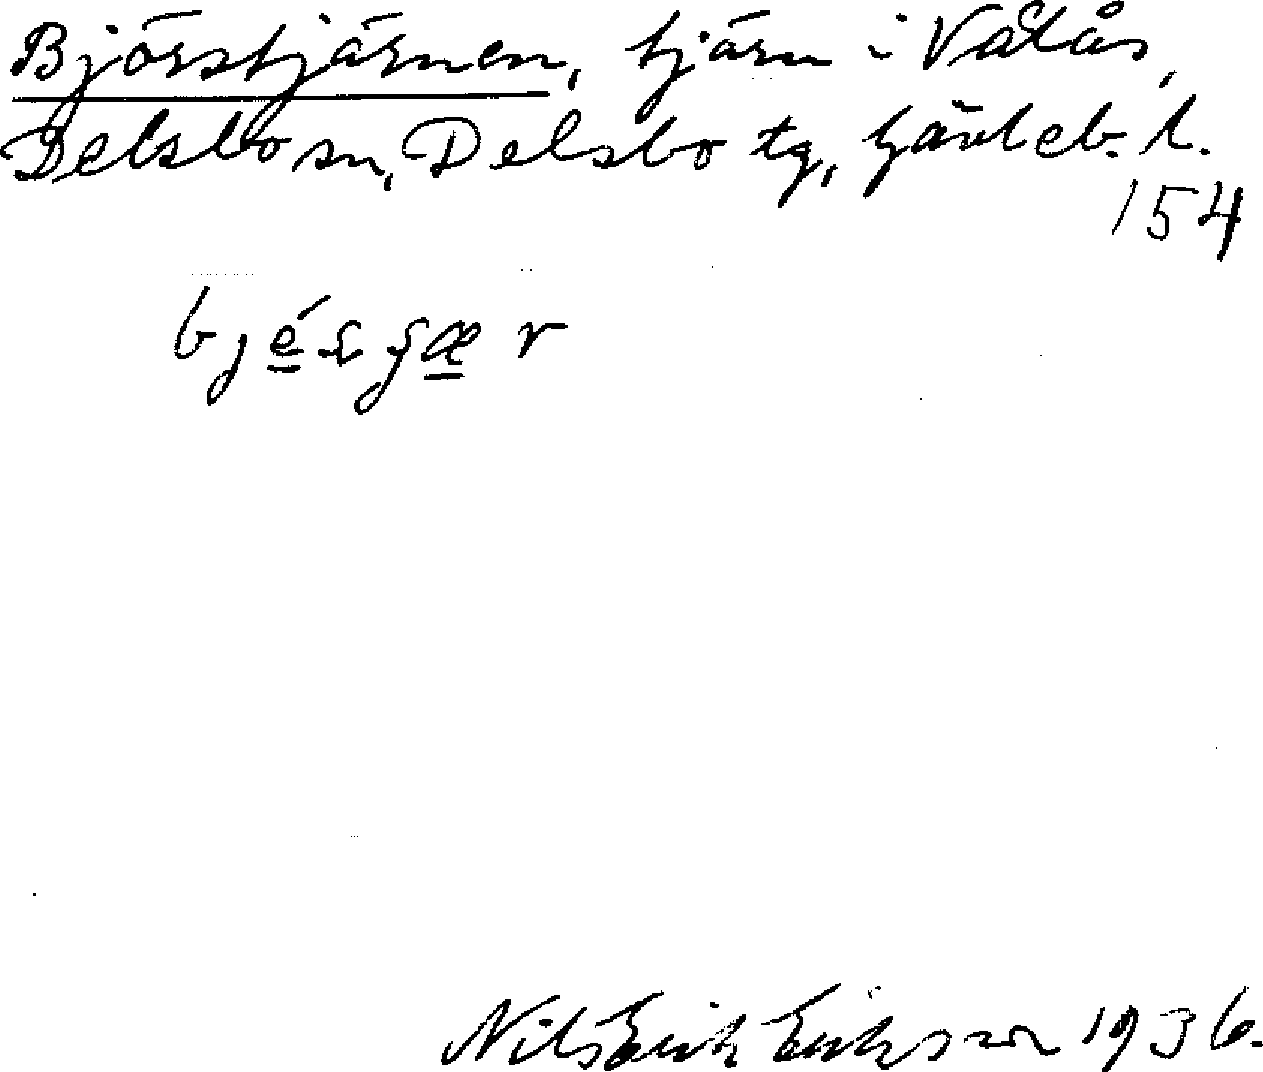 Björstjärnen, tjärn i Våtås,
Delsbo sn, Delsbo tg, Gävleb. l.
154
Nils Erik Eriksson 1936.